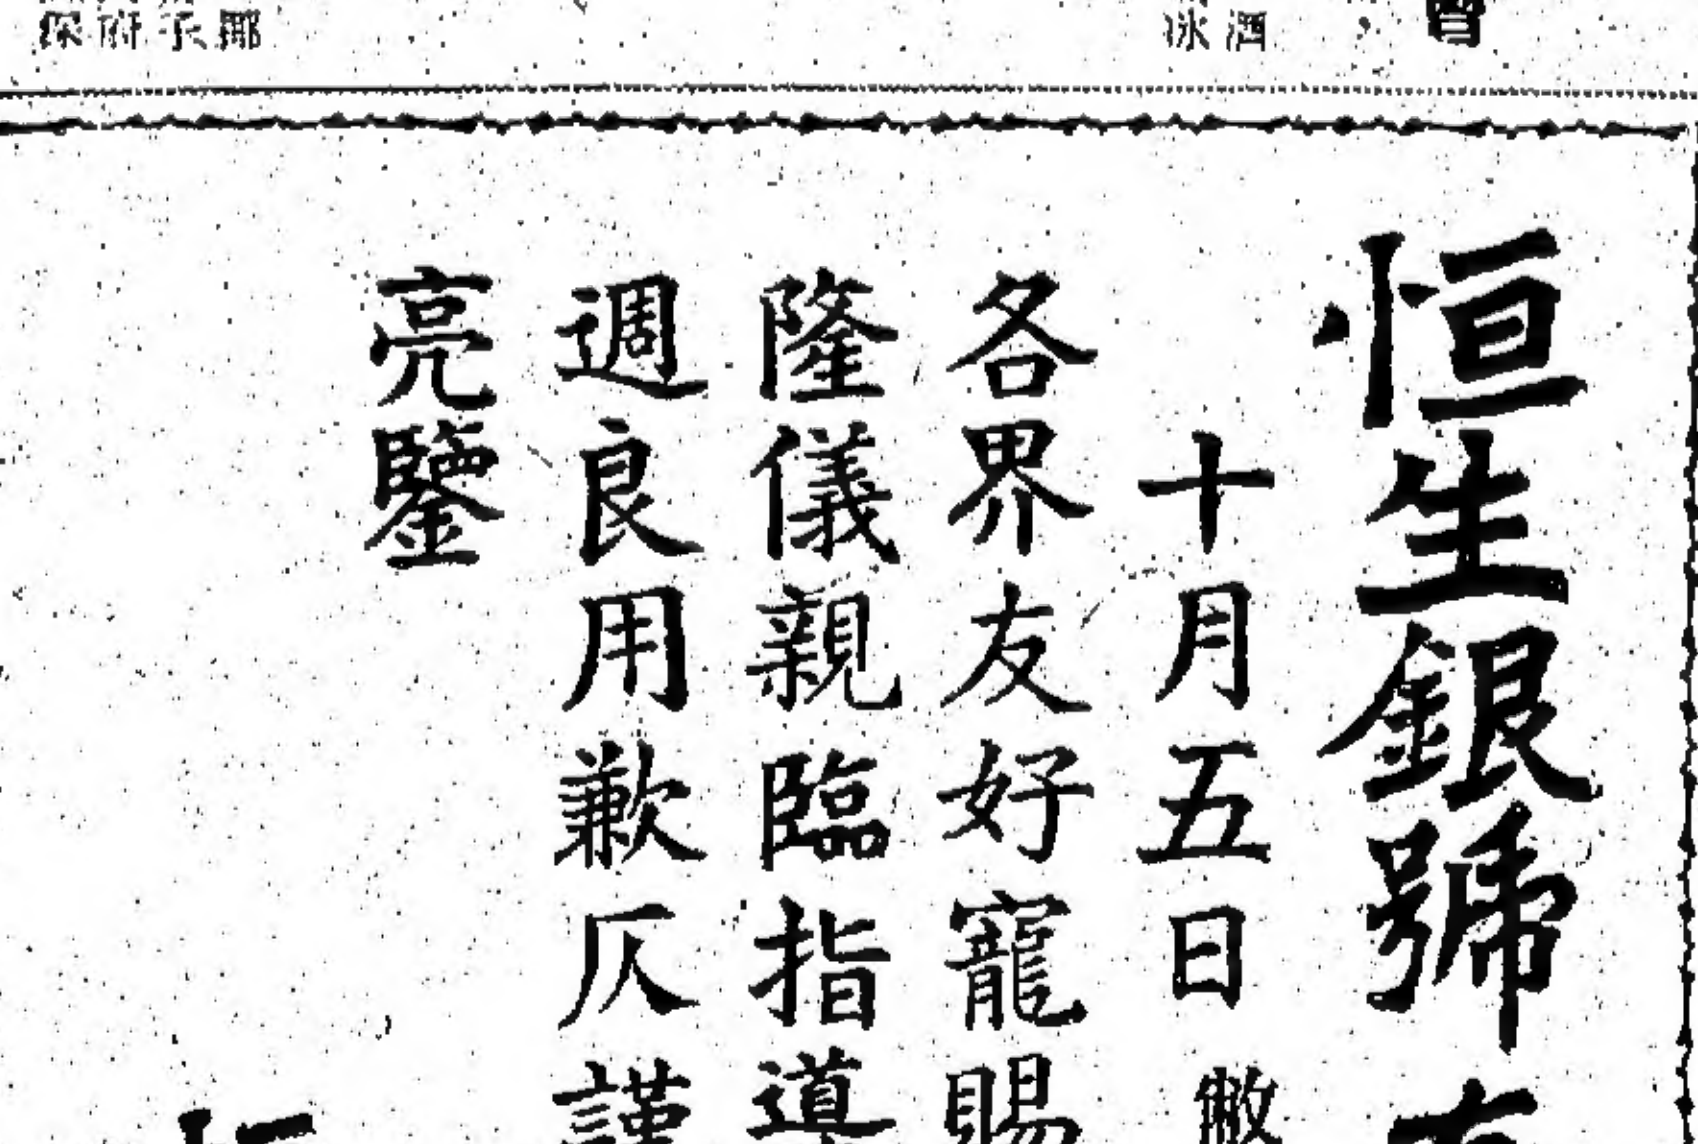 恒生銀號
十月五日敝
各界友好寵賜
隆儀親臨指導
週良用歉仄謹
亮鑒